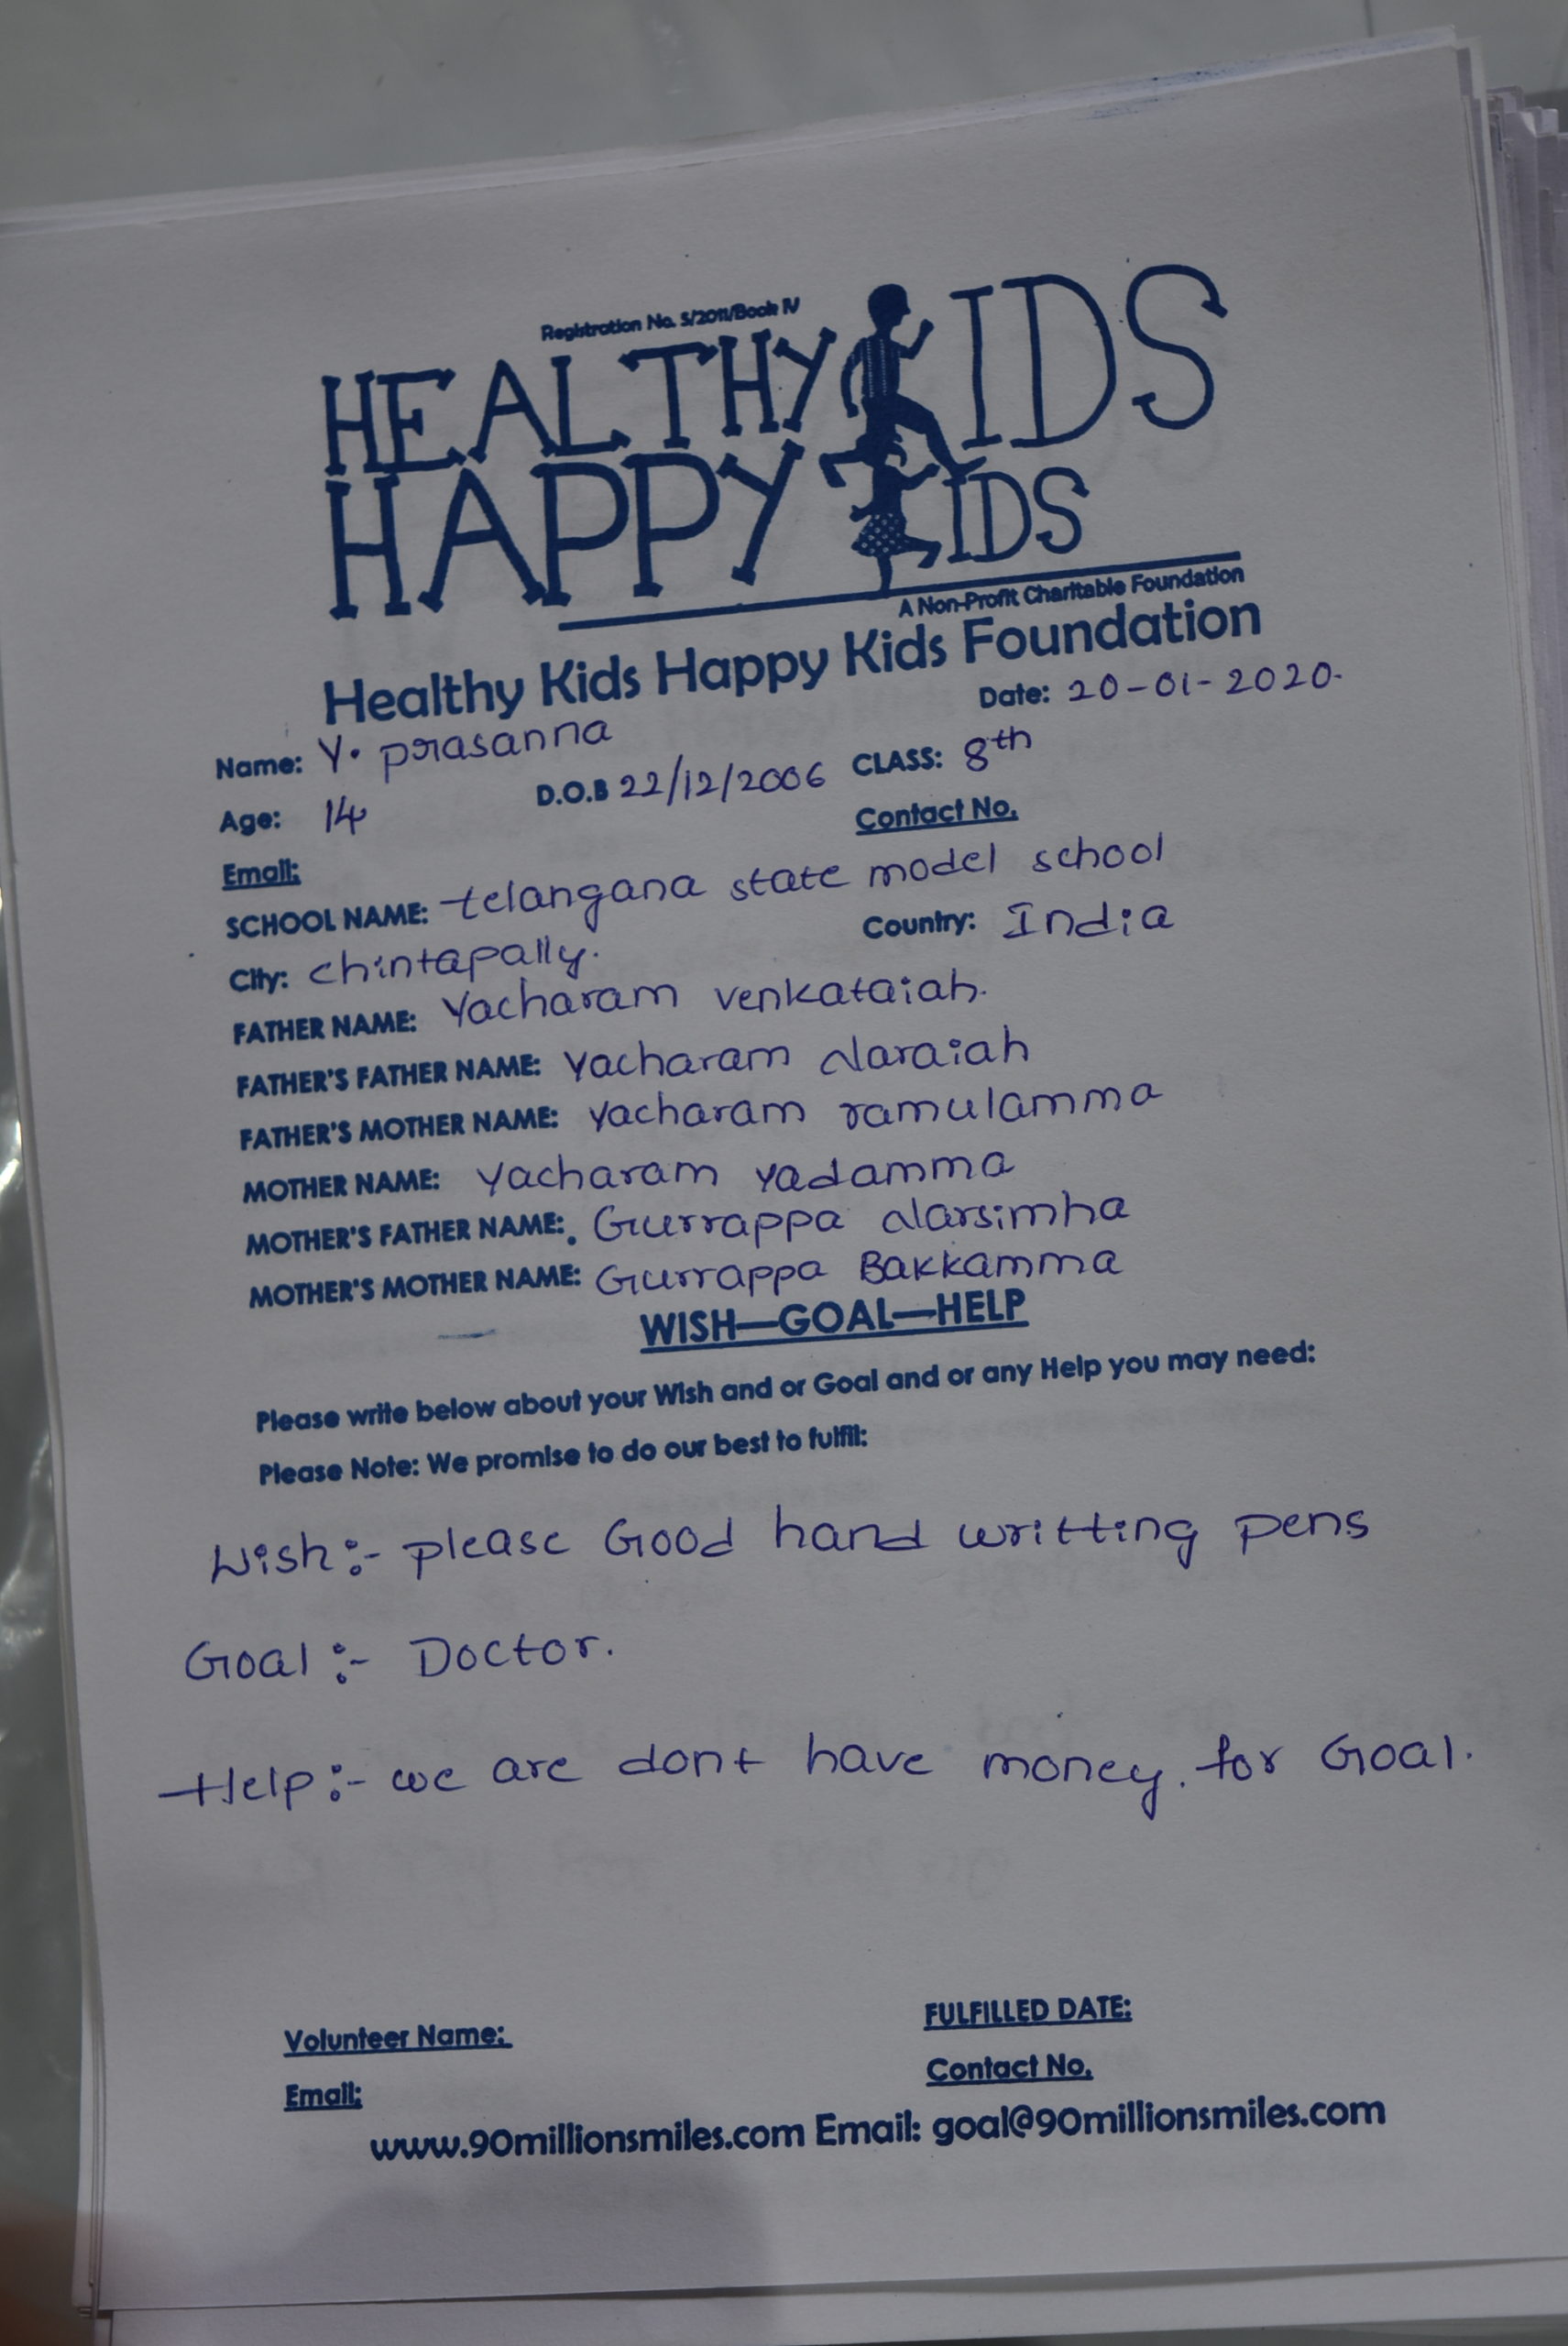 Registration No. S/2011/Book IV
HEALTHY KIDS
HAPPY KIDS
A Non-Profit Charitable Foundation
Healthy Kids Happy Kids Foundation
Date: 20-01-2020.
Name: Y. prasanna
Age: 14 D.O.B 22/12/2006 CLASS: 8th
Email: Contact No.
SCHOOL NAME: telangana state model school
City: chintapally. Country: India
FATHER NAME: Yacharam venkataiah.
FATHER'S FATHER NAME: Yacharam Naraiah
FATHER'S MOTHER NAME: Yacharam ramulamma
MOTHER NAME: Yacharam yadamma
MOTHER'S FATHER NAME: Gurrappa Narsimha
MOTHER'S MOTHER NAME: Gurrappa Bakkamma
WISH—GOAL—HELP
Please write below about your Wish and or Goal and or any Help you may need:
Please Note: We promise to do our best to fulfil:
Wish:- please Good hand writting pens
Goal:- Doctor.
Help:- we are dont have money. for Goal.
Volunteer Name: FULFILLED DATE:
Email: Contact No.
www.90millionsmiles.com Email: goal@90millionsmiles.com